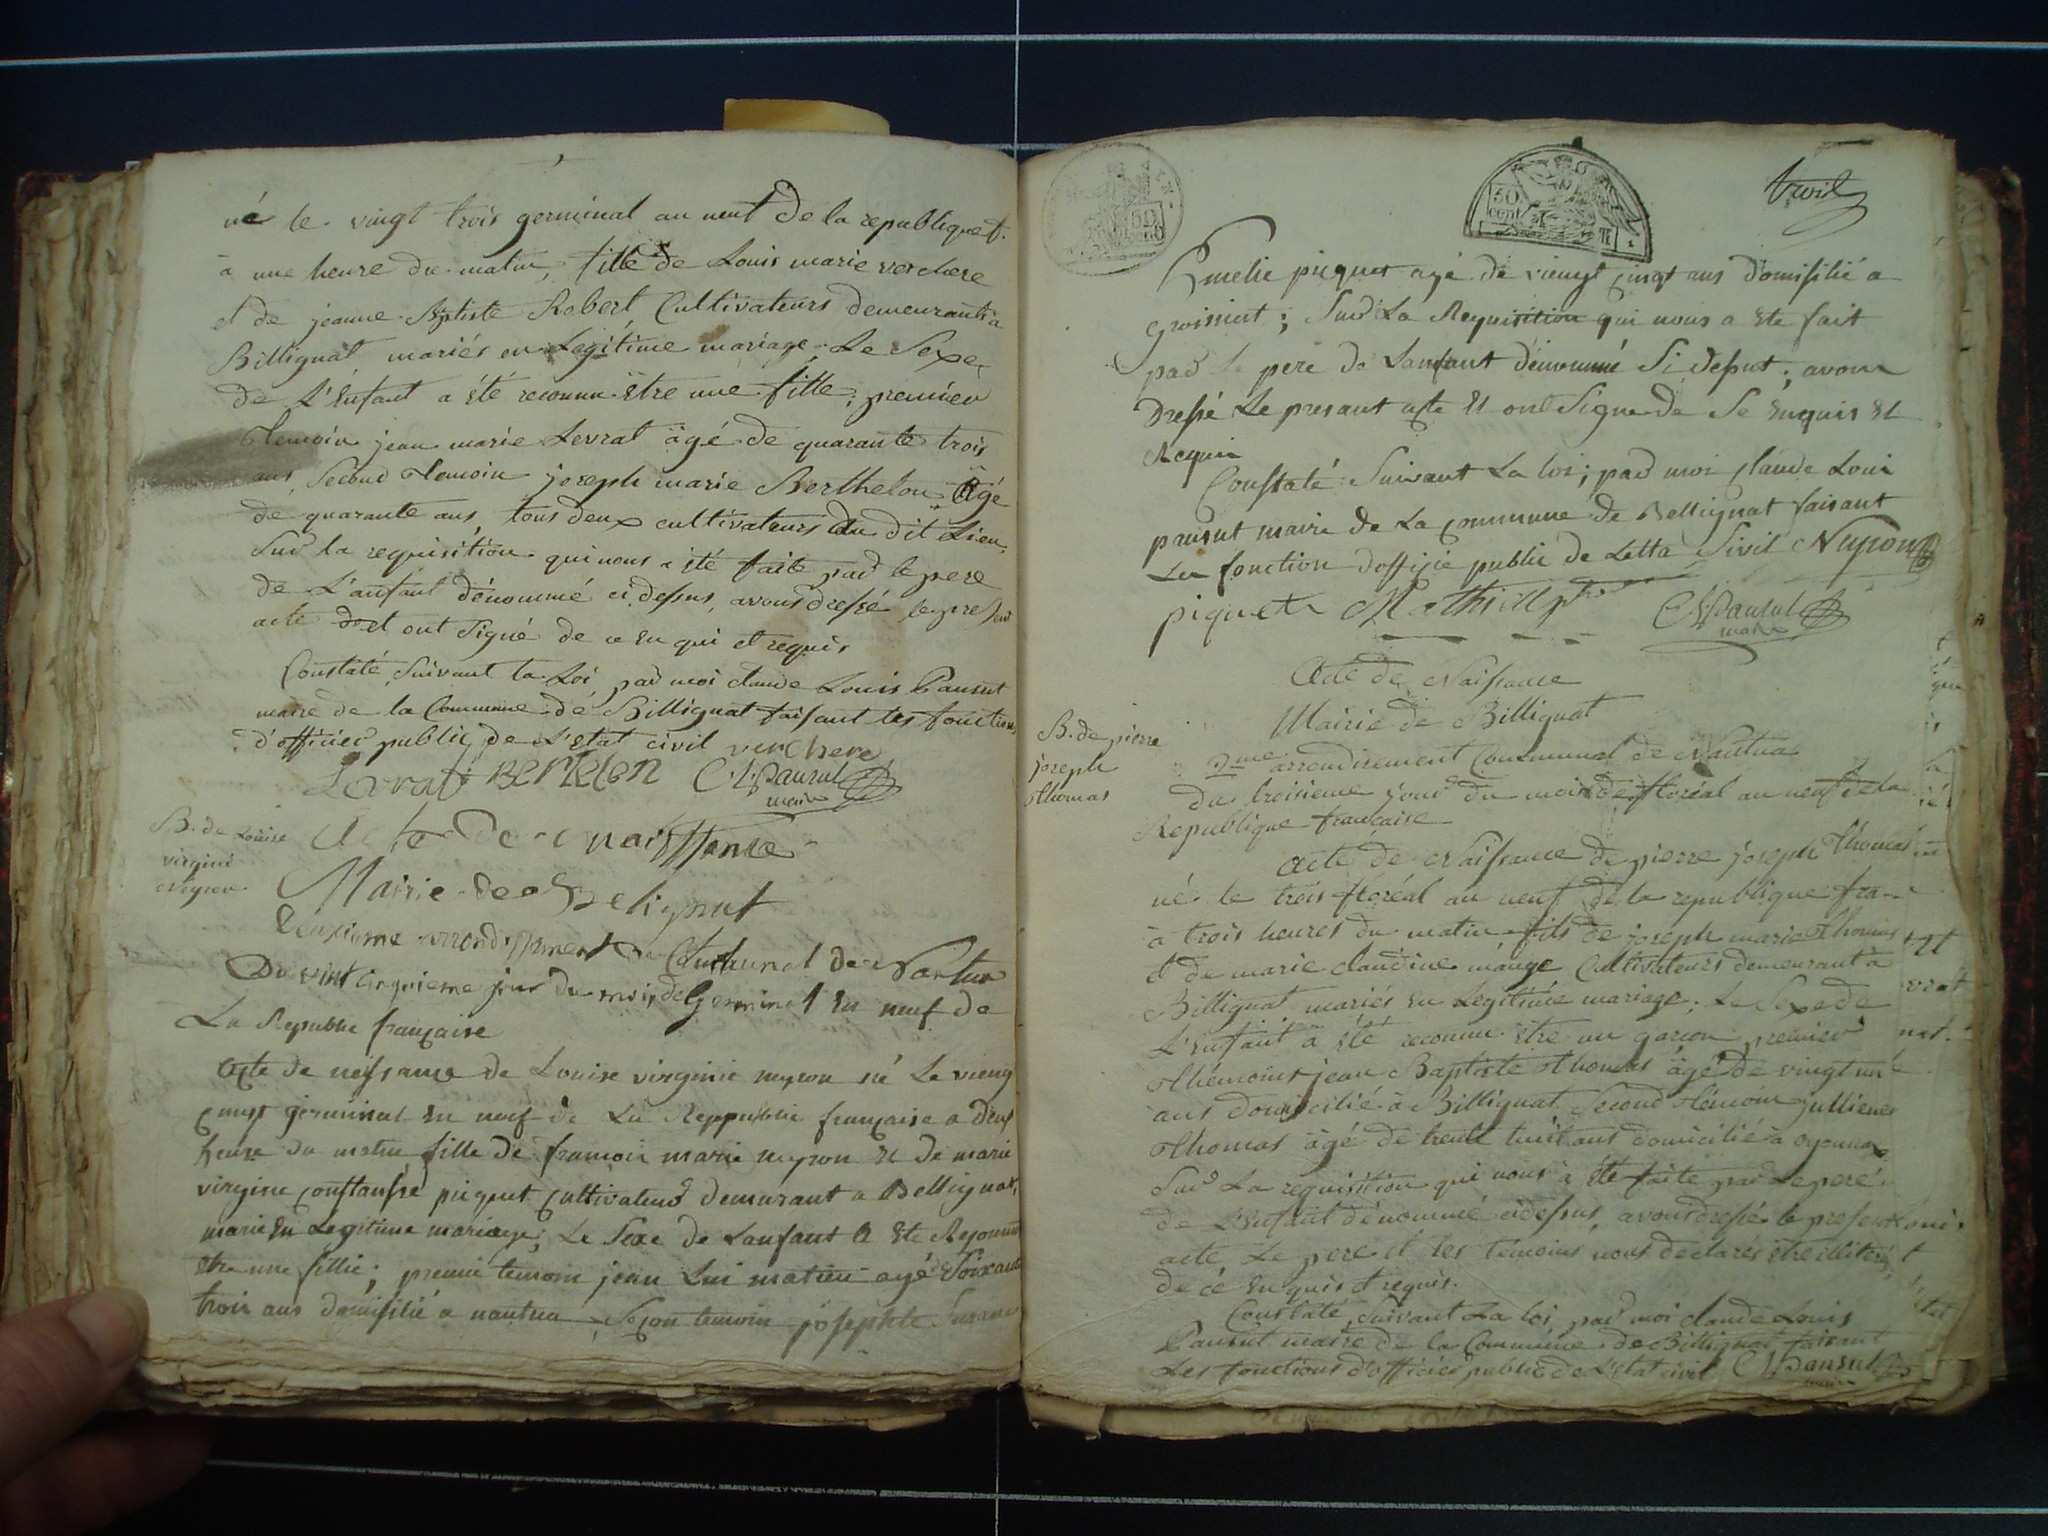 né le vingt trois germinal an neuf de la republique f.
à une heure du matin, fille de Louis marie verchere
et de jeanne Baptiste Robert Cultivateurs demeurants à
Billignat mariés en Légitime mariage. Le Sexe
de L'enfant a été reconnu être une fille; premier
temoin jean marie Levrat âgé de quarante trois
ans, Second temoin joseph marie Berthelon âgé
de quarante ans, tous deux cultivateurs du dit Lieu,
Sur la requisition qui nous a été faite par le pere
de L'anfant dénommé ci dessus, avons dressé le present
acte et ont Signé de ce en qui et requis
Constaté Suivant la Loi par moi claude Louis Pansut
maire de la Commune de Billignat faisant les fonctions
d'officier public de L'etat civil verchere
Levrat BERTELON Cl Pansut
maire
B. de Louise
virgini
Neyron
Acte de naissance
Mairie de Belignat
deuxieme arrondissement Communal de Nantua
Du vint cinquieme jour du mois de Germinal en neuf de
La Republie française
Acte de neissance de Louise virginie neyron né Le vieng
cinqt germinal en neuf de La Reppublie française a deux
heure du matin fille de francois marie neyron et de marie
virgine constansse piqeut cultivateur demurant a Bellignat,
marie en Legitime mariage; Le Sexe de Lanfant a ete Reconnu
etre une fillie; premié temoin jean Lui matieu agé Soixant
troir ans domisilié a nantua, Segon temoin josephte Susanne
troix
50 cent
Emelie piquet agé de viengt cinqt ans domisilié a
Groissiat; Sur La Requisition qui nous a ete fait
par le pere de Lanfant dénommé Si desut; avons
Dressé Le presant acte et ont Signe de Se enquis et
Requis
Constaté Suivant La loi; par moi claude Loui
pansut maire de La commune de Bellignat faisant
Les fonction doffisié public de Letta Sivil Neyron
piquet Mathieu Cl Pansut
maire
Acte de Naissance
Mairie de Billignat
B. de pierre
joseph
thomas
2me arrondissement Communal de Nantua
du troisieme jour du mois de floréal an neuf de la
Republique française
Acte de Naissance de pierre joseph thomas
né le trois floréal an neuf de la republique fra
à trois heures du matin fils de joseph marie thomas
et de marie claudine mange Cultivateurs demeurant à
Billignat mariés en Legitime mariage. Le Sexe de
L'enfant a été reconnu être un garçon premier
thémoint jean Baptiste thomas âgé de vingt un
ans domicilié à Billignat, Second témoin jullienes
thomas âgé de trente huit ans domicilié à oyonnax
Sur La requisition qui nous à été faite par Le pere
de L'enfant dénommé cidessus, avons dressé le present
acte Le pere et les témoins nous declarés être illiteré
de cé en quis et requis.
Constaté, Suivant La loi par moi claude Louis
Pansut maire de la Commune de Billignat faisant
Les fonctions d'officier public de L'etat civil Cl Pansut
maire